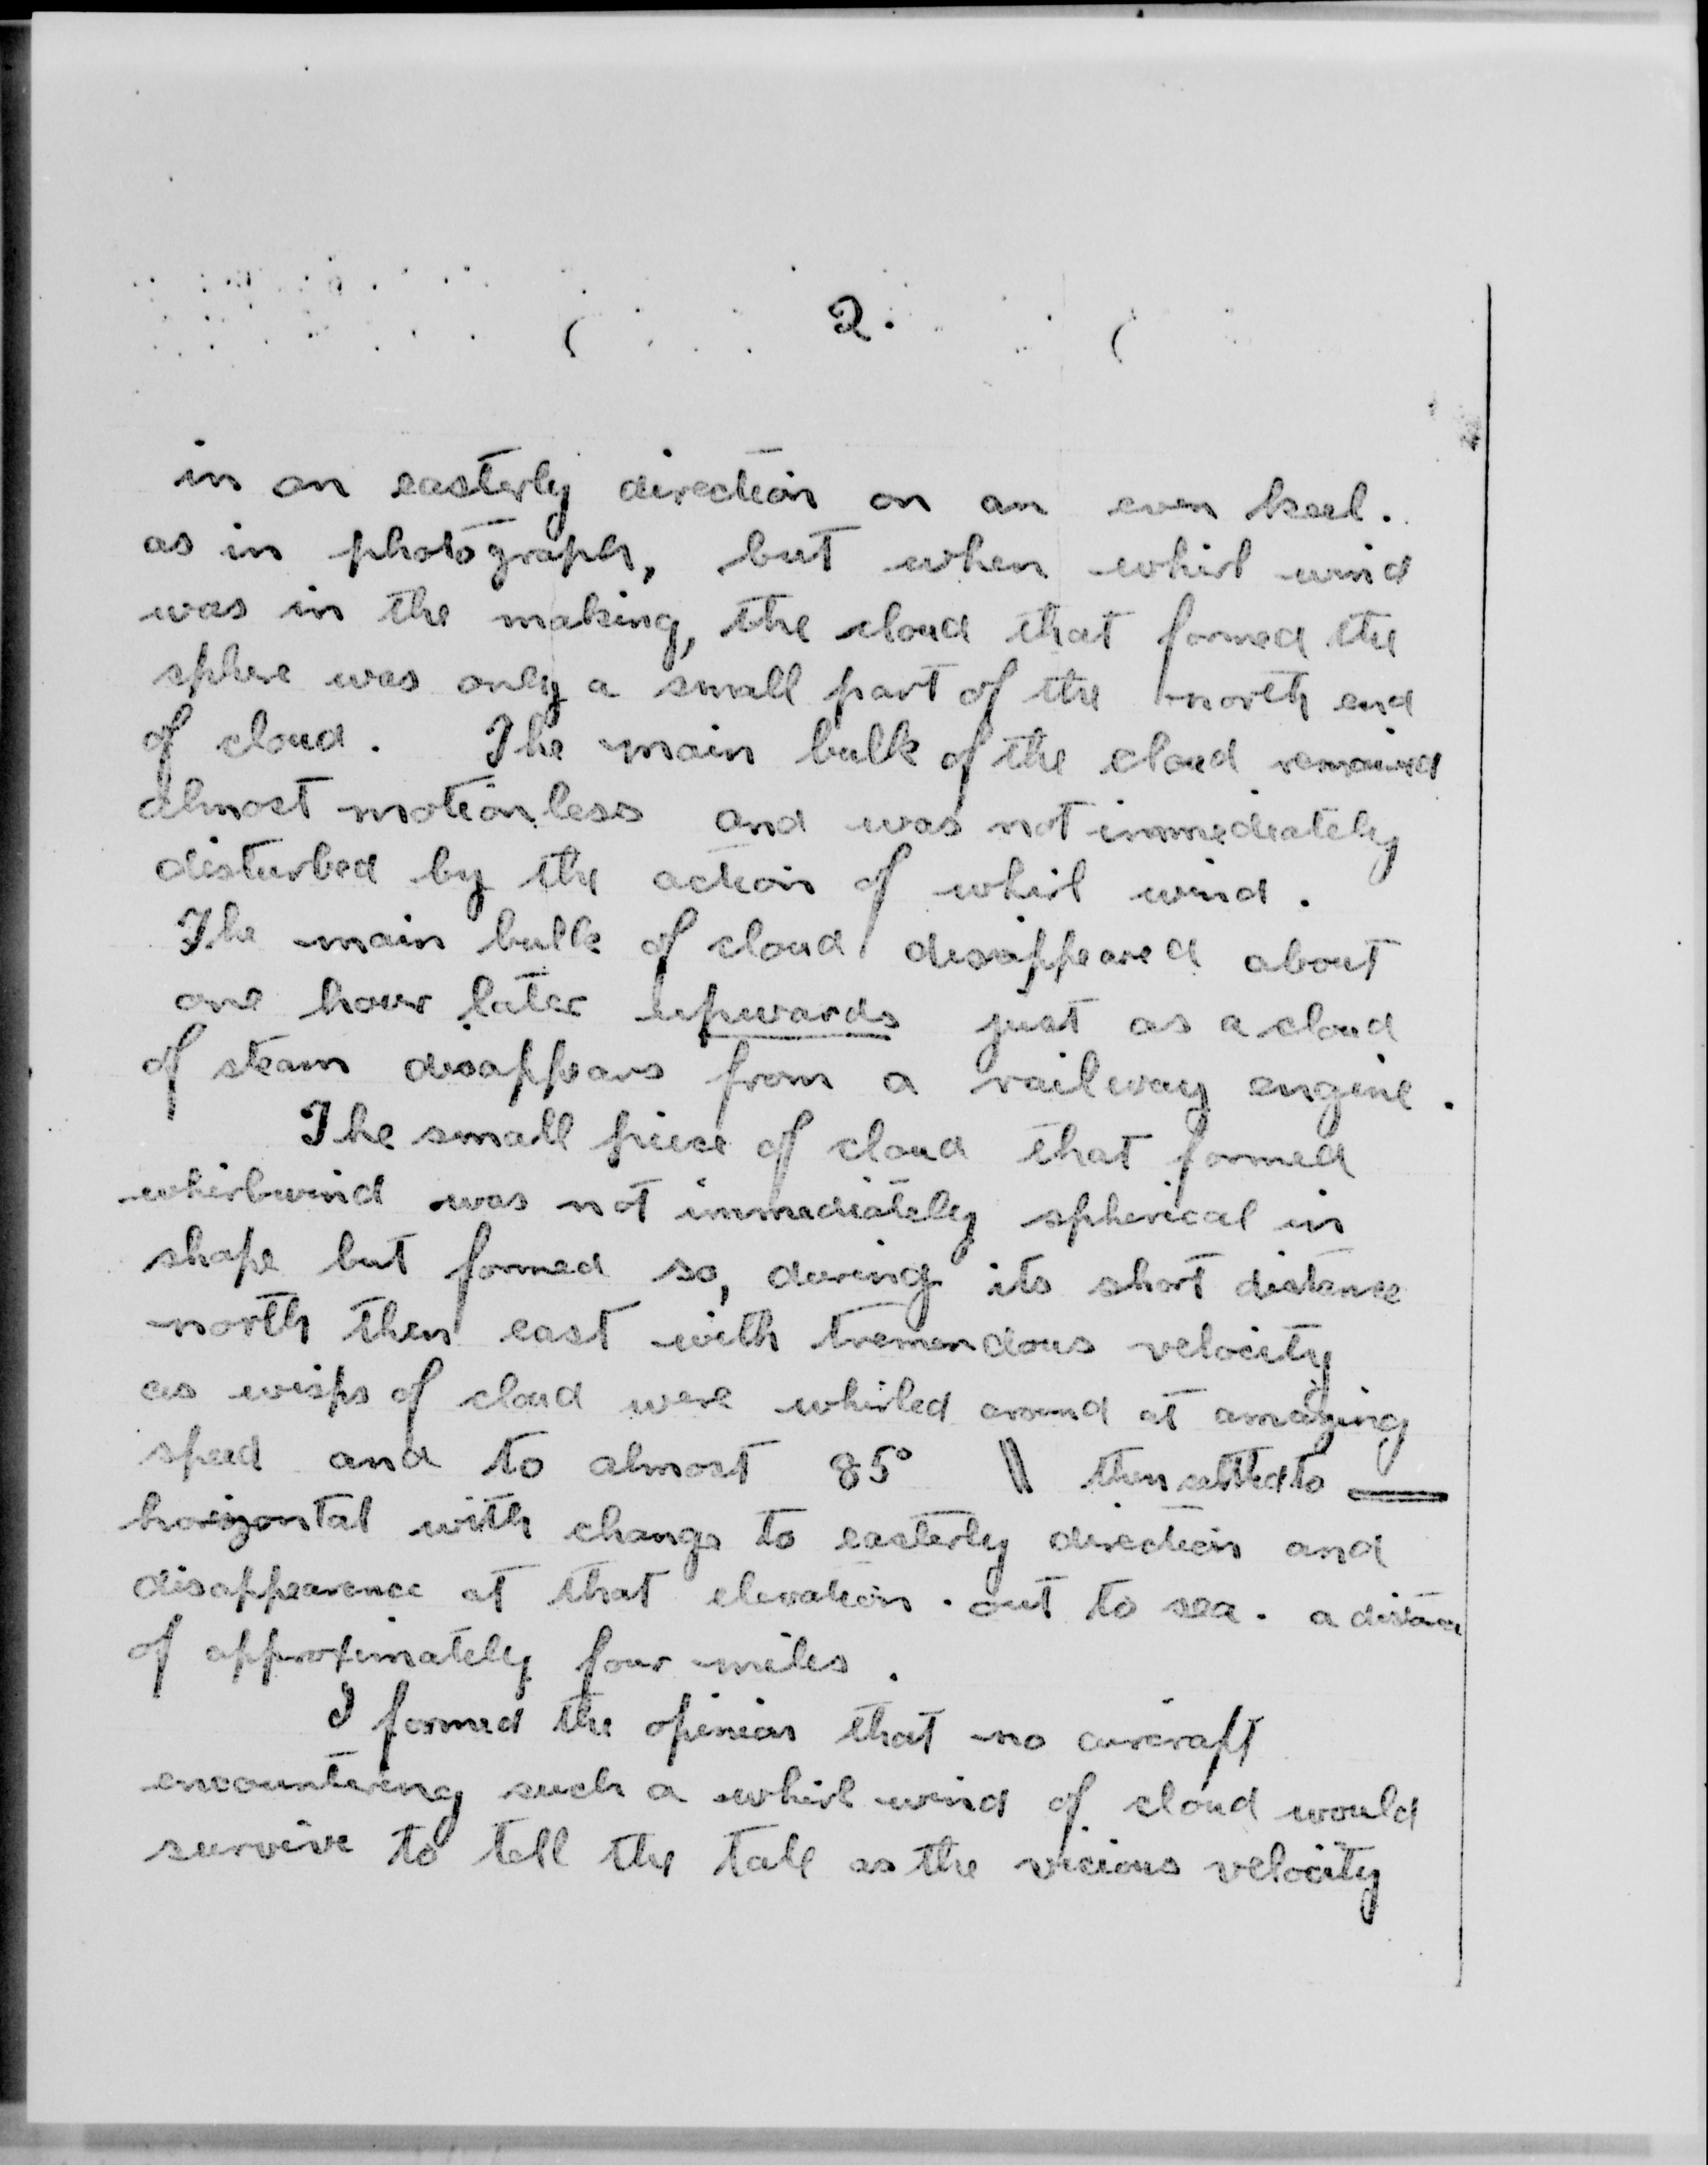 2.
in an easterly direction on an even keel.
as in photograph, but when whirl wind
was in the making, the cloud that formed the
sphere was only a small part of the north end
of cloud. The main bulk of the cloud remained
almost motionless and was not immediately
disturbed by the action of whirl wind.
The main bulk of cloud disappeared about
one hour later upwards just as a cloud
of steam disappears from a railway engine.
The small piece of cloud that formed
whirlwind was not immediately spherical in
shape but formed so, during its short distance
north then east with tremendous velocity
as wisps of cloud were whirled around at amazing
speed and to almost 85° \\ then settled to —
horizontal with change to easterly direction and
disappearence at that elevation. out to sea. a distance
of approximately four miles.
I formed the opinion that no aircraft
encountering such a whirl wind of cloud would
survive to tell the tale as the vicious velocity